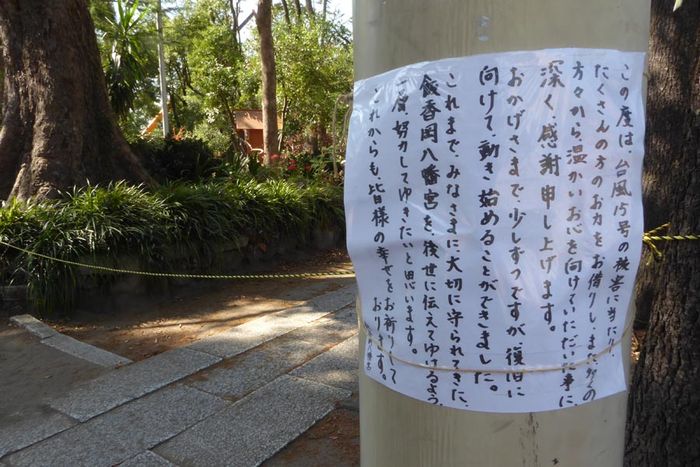 この度は、台風15号の被害に当たり、
たくさんの方のお力をお借りし、また多くの
方々から、温かいお心を向けていただいた事に、
深く、感謝申し上げます。
おかげさまで、少しずつですが、復旧に
向けて、動き始めることができました。
これまで、みなさまに、大切に守られてきた、
飯香岡八幡宮を、後世に伝えてゆけるよう、
努力してゆきたいと思います。
これからも、皆様の幸せをお祈りして
おります。